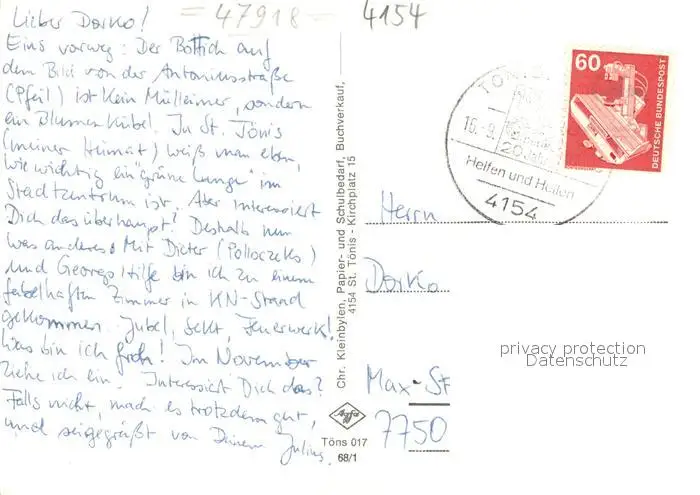 = 47918 = 4154
Lieber Darko!
Eins vorweg: Der Bottich auf
dem Bild von der Antoniusstraße
(Pfeil) ist kein Mülleimer, sondern
ein Blumenkübel. In St. Tönis
(meiner Heimat) weiß man eben,
wie wichtig ein "grüne Lunge" im
Stadtzentrum ist. Aber interessiert
Dich das überhaupt? Deshalb nun
was anderes. Mit Dieter (Polloczeks)
und Georgs Hilfe bin ich zu einem
fabelhaften Zimmer in KN-Staad
gekommen. Jubel, Sekt, Feuerwerk!
Was bin ich froh! Im November
ziehe ich ein. Interessiert Dich das?
Falls nicht, mach es trotzdem gut,
und sei gegrüßt von Deinem Julius.
Chr. Kleinbylen, Papier- und Schulbedarf, Buchverkauf,
4154 St. Tönis - Kirchplatz 15
Agfa
Töns 017
68/1
TÖNIS
20 Jahre
Helfen und Heilen
4154
60
DEUTSCHE BUNDESPOST
Herrn
Darko
Max-St
7750
privacy protection
Datenschutz